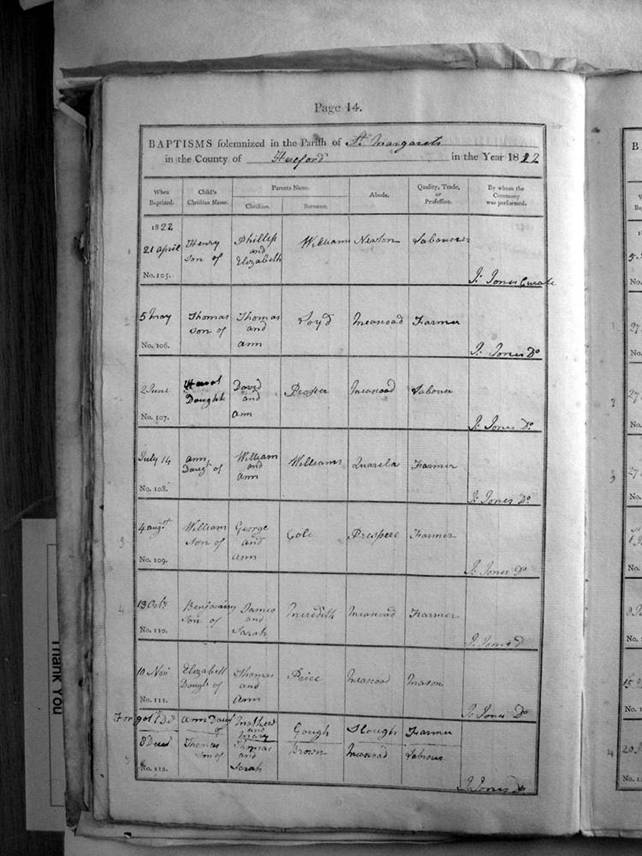 Page 14.
BAPTISMS solemnized in the Parish of St. Margarets
in the County of Hereford in the Year 1822
When Baptized. Child's Christian Name. Parents Name. Christian. Surname. Abode. Quality, Trade, or Profession. By whom the Ceremony was performed.
1822
21 April Henry Son of Phillip and Elizabeth Williams Newton Labourer
No. 105. J. Jones Curate
5 May Thomas Son of Thomas and Ann Loyd Farmer
No. 106. J. Jones Do
2 June Daught David and Ann Prosser Labourer
No. 107. J. Jones Do
July 14 Ann Daugt of William and Ann Williams Quarela Farmer
No. 108. J. Jones Do
4 augst William Son of George and Ann Cole Farmer
No. 109. J. Jones Do
13 Octr Benjaimy Son of James and Sarah Meredith Farmer
No. 110. J. Jones d
10 Novr Elizabeth Daugt of Thomas and Ann Price Mason
No. 111. J. Jones Do
Forgot Ann Daugt of Mathew and Mary Gough Slough Farmer
8 Decr Thomas Son of Thomas and Sarah Brown Labour
No. 112. J. Jones do
Thank You